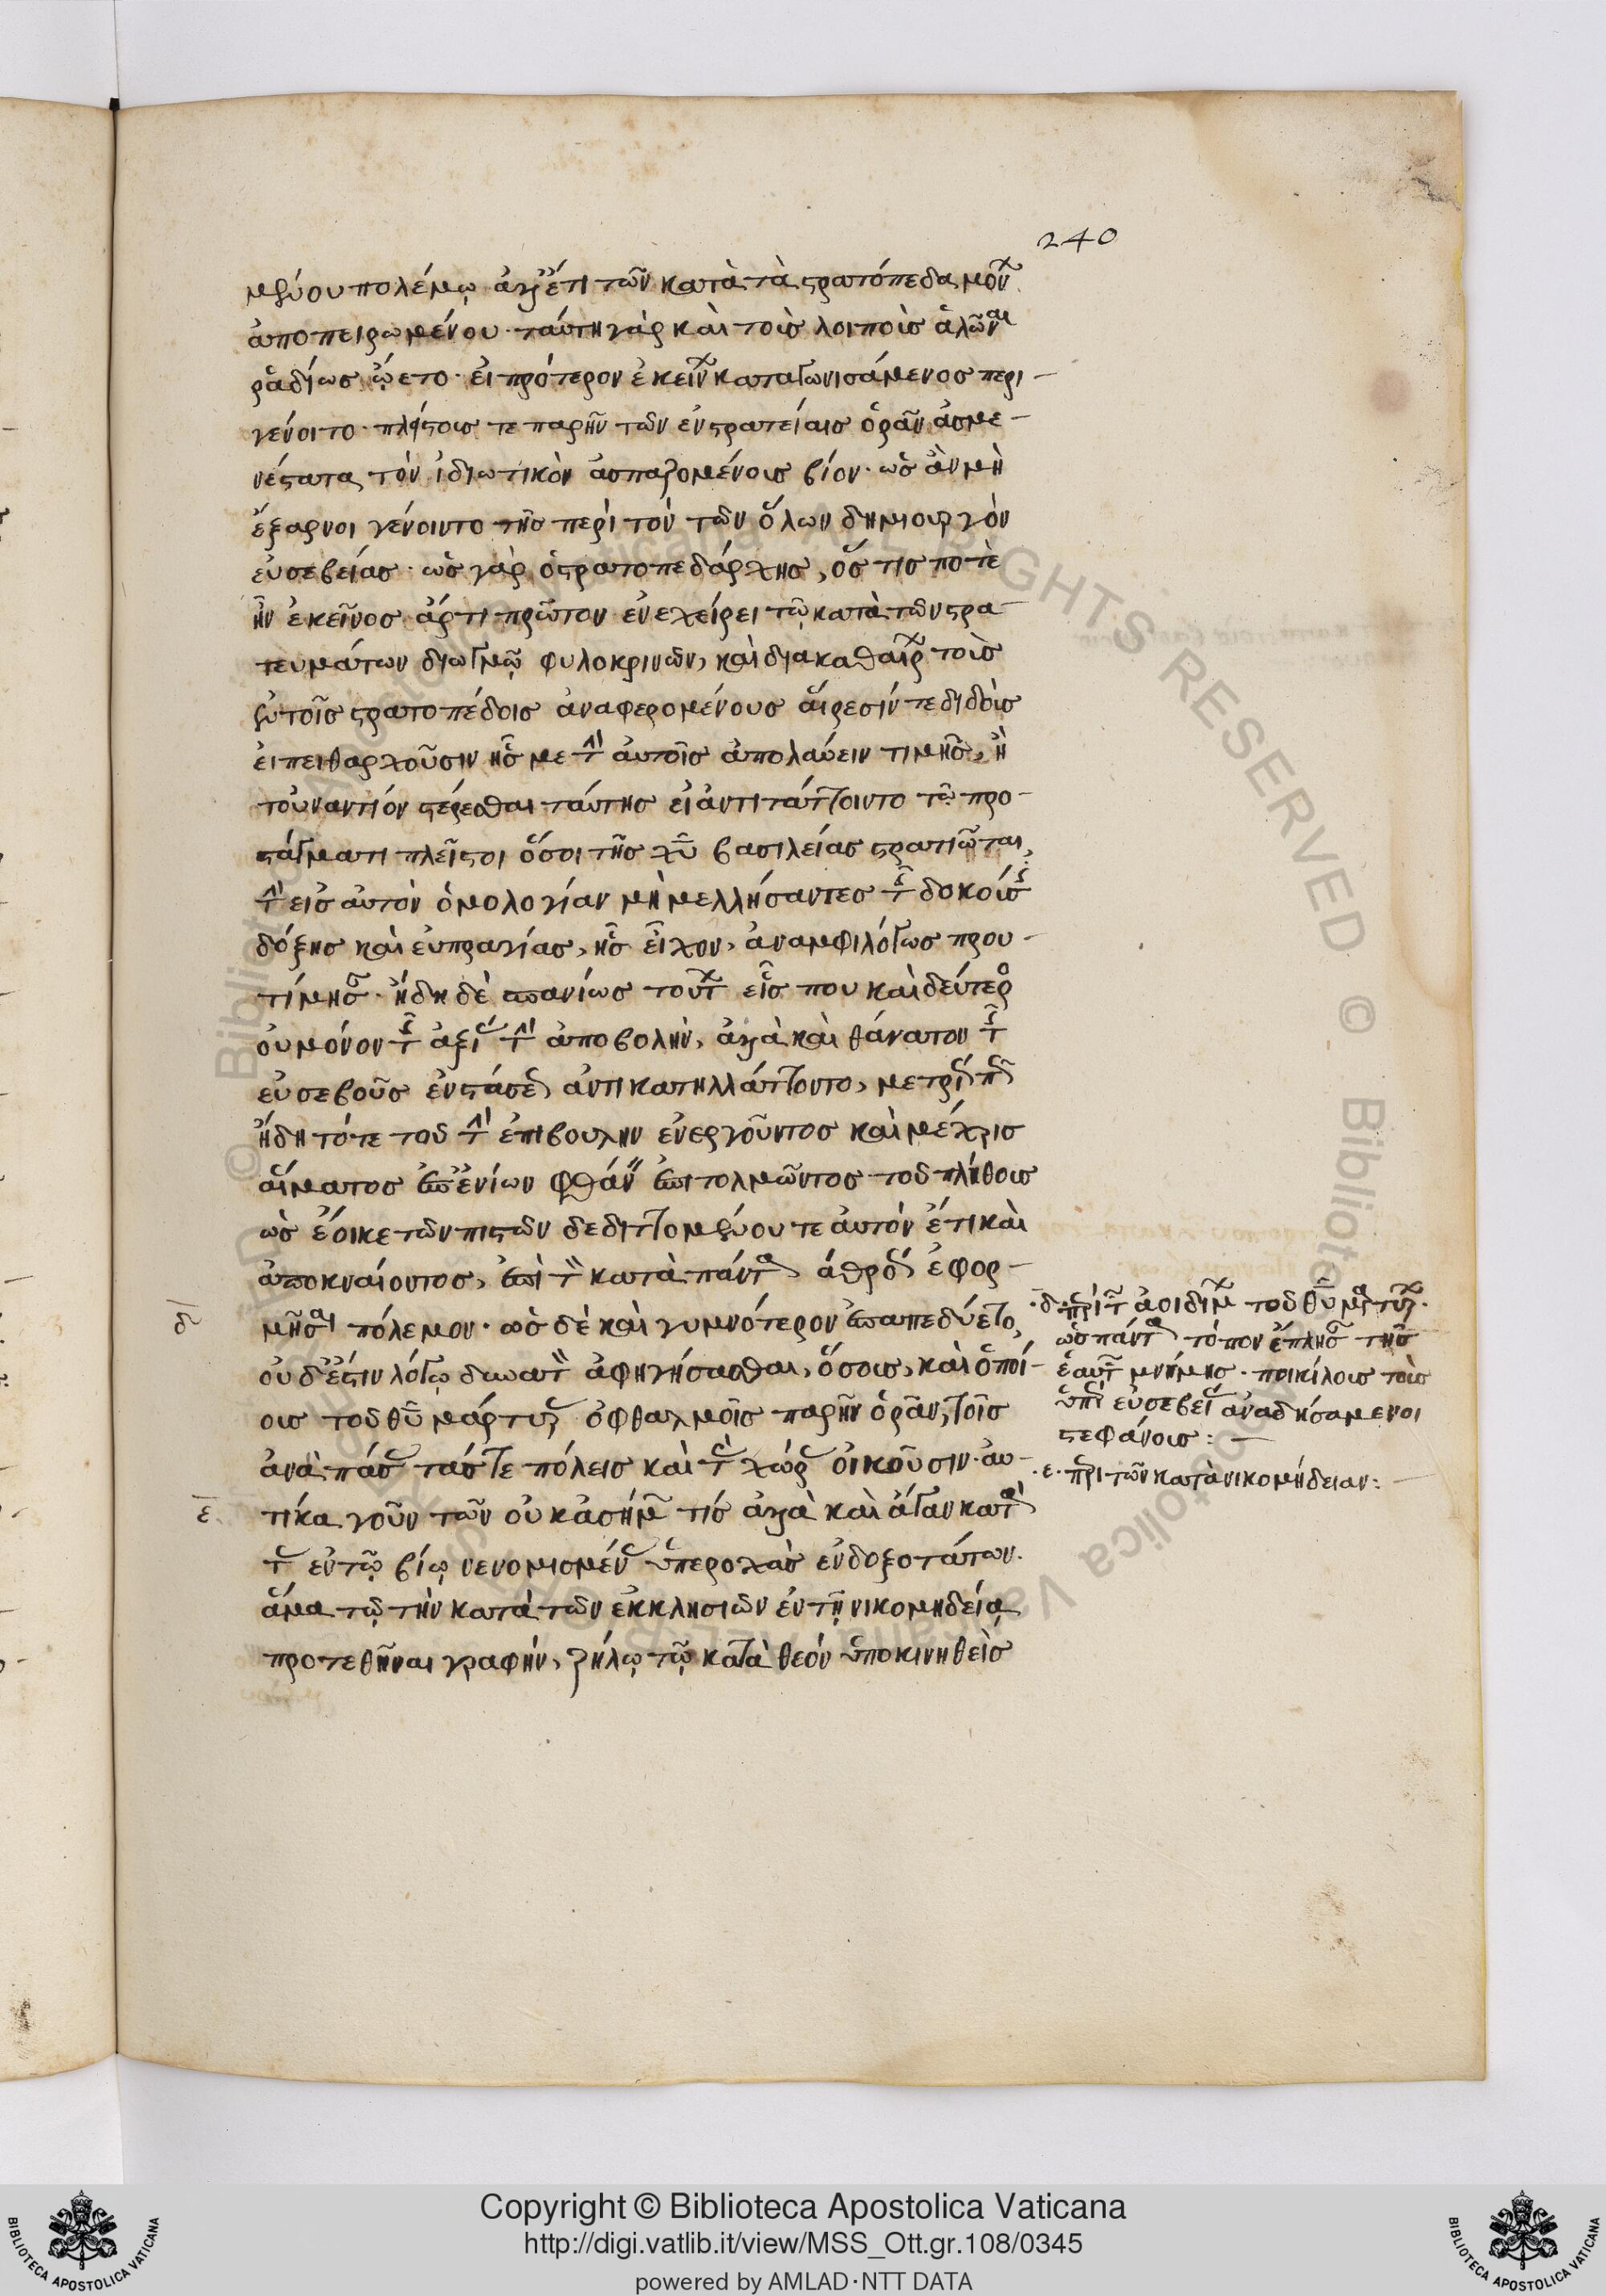 240
μένου πολέμῳ ἀλλ' ἔτι τῶν κατὰ τὰ στρατόπεδα μον
ἀποπειρωμένου· ταύτη γὰρ καὶ τοὺς λοιποὺς ἁλῶναι
ῥαδίως ᾤετο· εἰ πρότερον ἐκείν καταγωνισάμενος περι-
γένοιτο· πλείστους τε παρῆν τῶν ἐν στρατείαις ὁρᾶν ἀσμε-
νέστατα τὸν ἰδιωτικὸν ἀσπαζομένους βίον· ὡς ἂν μὴ
ἔξαρνοι γένοιντο τῆς περὶ τὸν τῶν ὅλων δημιουργὸν
εὐσεβείας· ὡς γὰρ ὁ στρατοπεδάρχης, ὅς τίς ποτε
ἦν ἐκεῖνος ἄρτι πρῶτον ἐνεχείρει τῷ κατὰ τῶν στρα-
τευμάτων διωγμῷ φυλοκρινῶν, καὶ διακαθαίρ τοὺς
ἐν τοῖς στρατοπέδοις ἀναφερομένους αἵρεσίν τε διδοὺς
εἰ πειθαρχοῦσιν ἧς με τ αὐτοῖς ἀπολαύειν τιμῆς, ἢ
τοὐναντίον στέρεσθαι ταύτης εἰ ἀντιτάττοιντο τῷ προ-
στάγματι πλεῖστοι ὅσοι τῆς χυ βασιλείας στρατιῶται,
τὴν εἰς αὐτὸν ὁμολογίαν μὴ μελλήσαντες τῆς δοκούσης
δόξης καὶ εὐπραγίας, ἧς εἶχον, ἀναμφιλόγως πρου-
τίμησαν· ἤδη δὲ σπανίως τούτων εἷς που καὶ δεύτερος
οὐ μόνον τῆς ἀξίας τὴν ἀποβολὴν, ἀλλὰ καὶ θάνατον τῆς
εὐσεβοῦς ἐνστάσεως ἀντικατηλλάττοντο, μετρίως πως
ἤδη τότε τοῦ τὴν ἐπιβουλὴν ἐνεργοῦντος καὶ μέχρις
αἵματος ἐπ' ἐνίων φθάνειν ἐπιτολμῶντος· τοῦ πλήθους
ὡς ἔοικε τῶν πιστῶν δεδιττομένου τε αὐτὸν ἔτι καὶ
ἀποκναίοντος, ἐπὶ τὸν κατὰ πάντων ἀθρόως ἐφορ-
μῆσαι πόλεμον· ὡς δὲ καὶ γυμνότερον ἐπαπεδύετο,
οὐδ' ἔστιν λόγῳ δυνατὸν ἀφηγήσασθαι, ὅσους, καὶ ὁποί-
ους τοῦ θυ μάρτυρας ὀφθαλμοῖς παρῆν ὁρᾶν, τοῖς
ἀνὰ πάσας τάς τε πόλεις καὶ τὰς χώρας οἰκοῦσιν· αὐ-
τίκα γοῦν τῶν οὐκ ἀσήμων τις ἀλλὰ καὶ ἄγαν κατὰ
τὰς ἐν τῷ βίῳ νενομισμένας ὑπεροχὰς ἐνδοξοτάτων·
ἅμα τῷ τὴν κατὰ τῶν ἐκκλησιῶν ἐν τῇ νικομηδείᾳ
προτεθῆναι γραφήν, ζήλῳ τῷ κατὰ θεὸν ὑποκινηθεὶς
δ
ε
·δ· περὶ τῶν ἀοιδίμων τοῦ θυ μαρτύρων·
ὡς πάντα τόπον ἔπλησαν τῆς
ἑαυτῶν μνήμης· ποικίλους τοὺς
ὑπὲρ εὐσεβείας ἀναδησάμενοι
στεφάνους:—
·ε· περὶ τῶν κατὰ νικομήδειαν:—
Copyright © Biblioteca Apostolica Vaticana
http://digi.vatlib.it/view/MSS_Ott.gr.108/0345
powered by AMLAD·NTT DATA